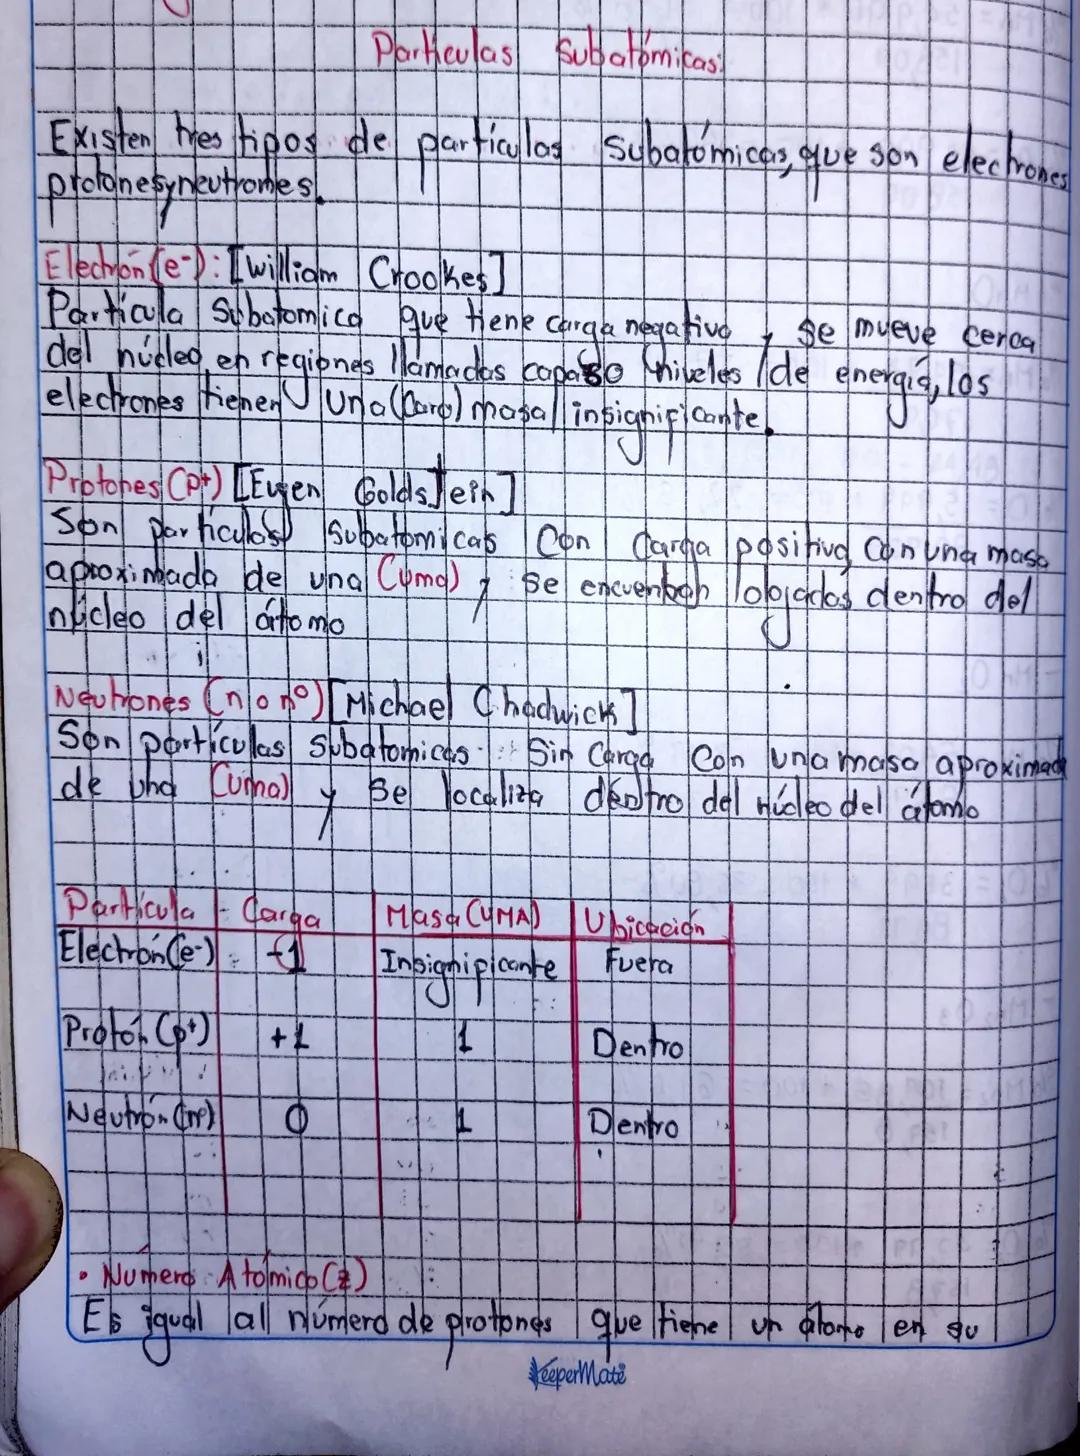 Partículas Subatómicas:
Existen tres tipos de partículas Subatómicas, que son electrones
protones y neutrones.
Electrón (e-): [William Crookes]
Partícula Subatomica que tiene carga negativa y se mueve cerca
del núcleo, en regiones llamadas capas o niveles de energía, los
electrones tienen una (Carg) masa insignificante.
Protones (p+) [Eugen Goldstein]
Son partículas Subatomicas Con Carga positiva, con una masa
aproximada de una (uma) y se encuentran lojados dentro del
núcleo del átomo
Neutrones (n o nº) [Michael Chadwick]
Son partículas subatomicas Sin Carga Con una masa aproximada
de una (uma) y se localiza dentro del núcleo del átomo
Partícula Carga Masa (UMA) Ubicación
Electrón (e-) -1 Insignificante Fuera
Protón (p+) +1 1 Dentro
Neutrón (nº) 0 1 Dentro
• Número Atómico (z)
Es igual al número de protones que tiene un átomo en su
KeeperMate